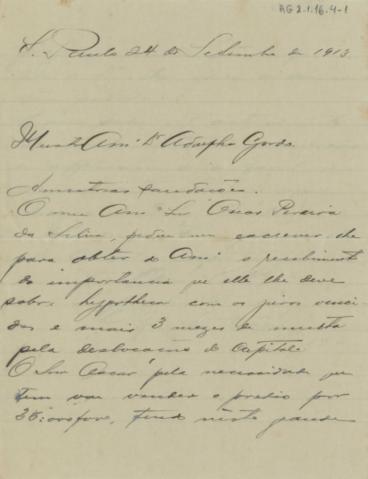 AG 2.1.16.4-1
S. Paulo 24 de Setembro de 1913
Am. Dr Adolpho Gordo
Amistosas saudações.
O meu Am. Snr Oscar Pereira
da Silva, escrever lhe
para obter do Am. o recebimento
da importancia q elle lhe deve
sobre hypotheca com os juros venci-
dos e mais 3 mezes de multa
pela deslocação do Capital.
O Snr Oscar pela necessidade que
tem vae vender o predio por